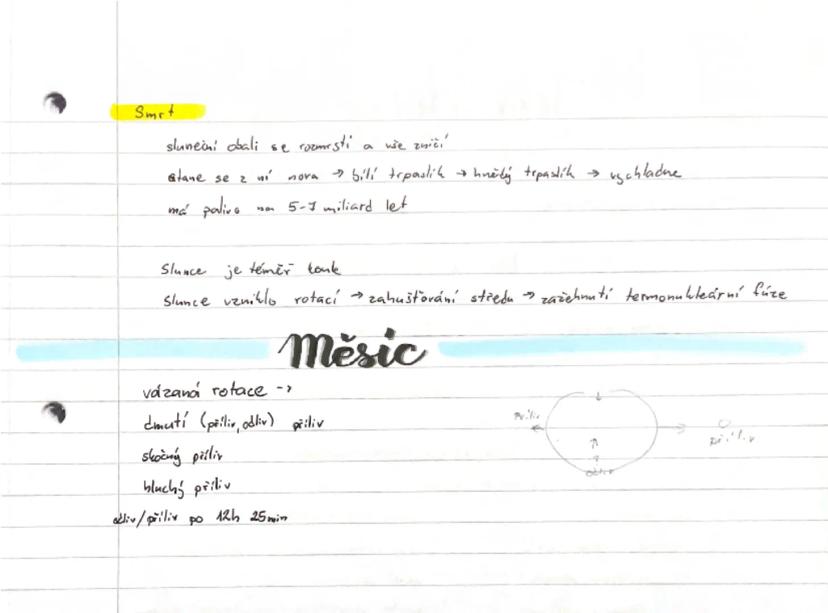 Smrt
sluneční obali se rozmrští a vše zničí
stane se z ní nova → bílí trpaslík → hnědý trpaslík → vychladne
má palivo na 5-7 miliard let
Slunce je téměř koule
Slunce vzniklo rotací → zahušťování středu → zažehnutí termonukleární fúze
Měsíc
vázaná rotace →
dmutí (příliv, odliv) příliv
skočný příliv
hluchý příliv
odliv/příliv po 12h 25min
Příliv
příliv
odliv